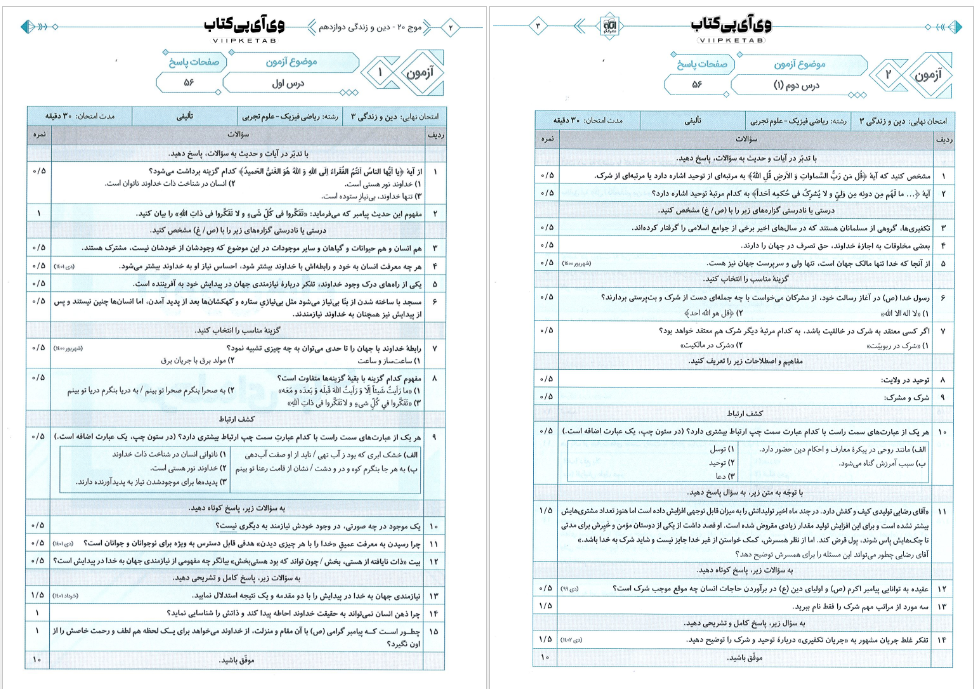 ۲
موج ۲۰ - دین و زندگی دوازدهم
وی‌آی‌پی‌کتاب
VIIPKETAB
آزمون
۱
موضوع آزمون
درس اول
صفحات پاسخ
۵۶
امتحان نهایی: دین و زندگی ۳
رشته: ریاضی فیزیک - علوم تجربی
تألیفی
مدت امتحان: ۳۰ دقیقه
ردیف
سؤالات
نمره
با تدبّر در آیات و حدیث به سؤالات، پاسخ دهید.
۱ از آیهٔ ﴿یا أَیُّهَا النّاسُ أَنتُمُ الفُقَراءُ إِلَی اللّهِ وَ اللّهُ هُوَ الغَنیُّ الحَمیدُ﴾ کدام گزینه برداشت می‌شود؟ ۰/۵
۱) خداوند نور هستی است. ۲) انسان در شناخت ذات خداوند ناتوان است.
۳) تنها خداوند، بی‌نیازِ ستوده است.
۲ مفهوم این حدیث پیامبر که می‌فرماید: «تَفَکَّروا فی کُلِّ شَیءٍ و لا تَفَکَّروا فی ذاتِ اللهِ» را بیان کنید. ۱
درستی یا نادرستی گزاره‌های زیر را با (ص / غ) مشخص کنید.
۳ هم انسان و هم حیوانات و گیاهان و سایر موجودات در این موضوع که وجودشان از خودشان نیست، مشترک هستند. ۰/۵
۴ هر چه معرفت انسان به خود و رابطه‌اش با خداوند بیشتر شود، احساس نیاز او به خداوند بیشتر می‌شود. ۰/۵
۵ یکی از راه‌های درک وجود خداوند، تفکر دربارهٔ نیازمندی جهان در پیدایش خود به آفریننده است. ۰/۵
۶ مسجد با ساخته شدن از بنّا بی‌نیاز می‌شود مثل بی‌نیازیِ ستاره و کهکشان‌ها بعد از پدید آمدن، اما انسان‌ها چنین نیستند و پس از پیدایش نیز همچنان به خداوند نیازمندند. ۰/۵
گزینهٔ مناسب را انتخاب کنید.
۷ رابطهٔ خداوند با جهان را تا حدی می‌توان به چه چیزی تشبیه نمود؟ (شهریور ۱۴۰۰) ۰/۵
۱) ساعت‌ساز و ساعت ۲) مولد برق با جریان برق
۸ مفهوم کدام گزینه با بقیهٔ گزینه‌ها متفاوت است؟ ۰/۵
۱) «ما رَأَیتُ شَیئاً إلّا وَ رَأَیتُ اللهَ قَبلَهُ وَ بَعدَهُ وَ مَعَهُ» ۲) به صحرا بنگرم صحرا تو بینم / به دریا بنگرم دریا تو بینم
۳) «تَفَکَّروا فی کُلِّ شَیءٍ و لا تَفَکَّروا فی ذاتِ اللهِ»
کشف ارتباط
۹ هر یک از عبارت‌های سمت راست با کدام عبارت سمت چپ ارتباط بیشتری دارد؟ (در ستون چپ، یک عبارت اضافه است.) ۰/۵
الف) خشک ابری که بود ز آب تهی / ناید از او صفت آب‌دهی ۱) ناتوانی انسان در شناخت ذات خداوند
ب) به هر جا بنگرم کوه و در و دشت / نشان از قامت رعنا تو بینم ۲) خداوند نور هستی است.
۳) پدیده‌ها برای موجودشدن نیاز به پدیدآورنده دارند.
به سؤالات زیر، پاسخ کوتاه دهید.
۱۰ یک موجود در چه صورتی، در وجود خودش نیازمند به دیگری نیست؟ ۰/۵
۱۱ چرا رسیدن به معرفت عمیقِ «خدا را با هر چیزی دیدن» هدفی قابل دسترس به ویژه برای نوجوانان و جوانان است؟ ۰/۵
۱۲ بیت «ذات نایافته از هستی، بخش / چون تواند که بود هستی‌بخش» بیانگر چه مفهومی از نیازمندی جهان به خدا در پیدایش است؟ ۰/۵
به سؤالات زیر، پاسخ کامل و تشریحی دهید.
۱۳ نیازمندی جهان به خدا در پیدایش را با دو مقدمه و یک نتیجه استدلال نمایید. (خرداد ۱۴۰۱) ۱/۵
۱۴ چرا ذهن انسان نمی‌تواند به حقیقت خداوند احاطه پیدا کند و ذاتش را شناسایی نماید؟ ۱
۱۵ چطور است که پیامبر گرامی (ص) با آن مقام و منزلت، از خداوند می‌خواهد برای یک لحظه هم لطف و رحمت خاصش را از اون نگیرد؟ ۱
موفّق باشید. ۱۰
۳
وی‌آی‌پی‌کتاب
VIIPKETAB
آزمون
۲
موضوع آزمون
درس دوم (۱)
صفحات پاسخ
۵۶
امتحان نهایی: دین و زندگی ۳
رشته: ریاضی فیزیک - علوم تجربی
تألیفی
مدت امتحان: ۳۰ دقیقه
ردیف
سؤالات
نمره
با تدبّر در آیات و حدیث به سؤالات، پاسخ دهید.
۱ مشخص کنید که آیهٔ ﴿قُل مَن رَبُّ السَّماواتِ وَ الأرضِ قُلِ اللهُ﴾ به مرتبه‌ای از توحید اشاره دارد یا مرتبه‌ای از شرک. ۰/۵
۲ آیهٔ ﴿... ما لَهُم مِن دونِهِ مِن وَلیٍّ وَ لا یُشرِکُ فی حُکمِهِ أَحَداً﴾ به کدام مرتبهٔ توحید اشاره دارد؟ ۰/۵
درستی یا نادرستی گزاره‌های زیر را با (ص / غ) مشخص کنید.
۳ تکفیری‌ها، گروهی از مسلمانان هستند که در سال‌های اخیر برخی از جوامع اسلامی را گرفتار کرده‌اند. ۰/۵
۴ بعضی مخلوقات به اجازهٔ خداوند، حق تصرف در جهان را دارند. ۰/۵
۵ از آنجا که خدا تنها مالک جهان است، تنها ولی و سرپرست جهان نیز هست. (شهریور ۱۴۰۰) ۰/۵
گزینهٔ مناسب را انتخاب کنید.
۶ رسول خدا (ص) در آغاز رسالت خود، از مشرکان می‌خواست با چه جمله‌ای دست از شرک و بت‌پرستی بردارند؟ ۰/۵
۱) «لا اله الا الله» ۲) ﴿قل هو الله احد﴾
۷ اگر کسی معتقد به شرک در خالقیت باشد، به کدام مرتبهٔ دیگر شرک هم معتقد خواهد بود؟ ۰/۵
۱) «شرک در ربوبیّت» ۲) «شرک در مالکیت»
مفاهیم و اصطلاحات زیر را تعریف کنید.
۸ توحید در ولایت: ۰/۵
۹ شرک و مشرک: ۰/۵
کشف ارتباط
۱۰ هر یک از عبارت‌های سمت راست با کدام عبارت سمت چپ ارتباط بیشتری دارد؟ (در ستون چپ، یک عبارت اضافه است.) ۰/۵
الف) مانند روحی در پیکرهٔ معارف و احکام دین حضور دارد. ۱) توسل
ب) سبب آمرزش گناه می‌شود. ۲) توحید
۳) دعا
با توجّه به متن زیر، به سؤال پاسخ دهید.
۱۱ «آقای رضایی تولیدی کیف و کفش دارد. در چند ماه اخیر تولیداتش را به میزان قابل توجهی افزایش داده است اما هنوز تعداد مشتری‌هایش ۱/۵
بیشتر نشده است و برای این افزایش تولید مقدار زیادی مقروض شده است. او قصد داشت از یکی از دوستان مؤمن و خیّرش برای مدتی
تا چک‌هایش پاس شوند، پول قرض کند. اما از نظر همسرش، کمک خواستن از غیر خدا جایز نیست و شاید شرک به خدا باشد.»
آقای رضایی چطور می‌تواند این مسئله را برای همسرش توضیح دهد؟
به سؤالات زیر، پاسخ کوتاه دهید.
۱۲ عقیده به توانایی پیامبر اکرم (ص) و اولیای دین (ع) در برآوردن حاجات انسان چه موقع موجب شرک است؟ (دی ۹۹) ۰/۵
۱۳ سه مورد از مراتب مهم شرک را فقط نام ببرید. ۱/۵
به سؤال زیر، پاسخ کامل و تشریحی دهید.
۱۴ تفکر غلط جریان مشهور به «جریان تکفیری» دربارهٔ توحید و شرک را توضیح دهید. (دی ۱۴۰۲) ۱/۵
موفّق باشید. ۱۰